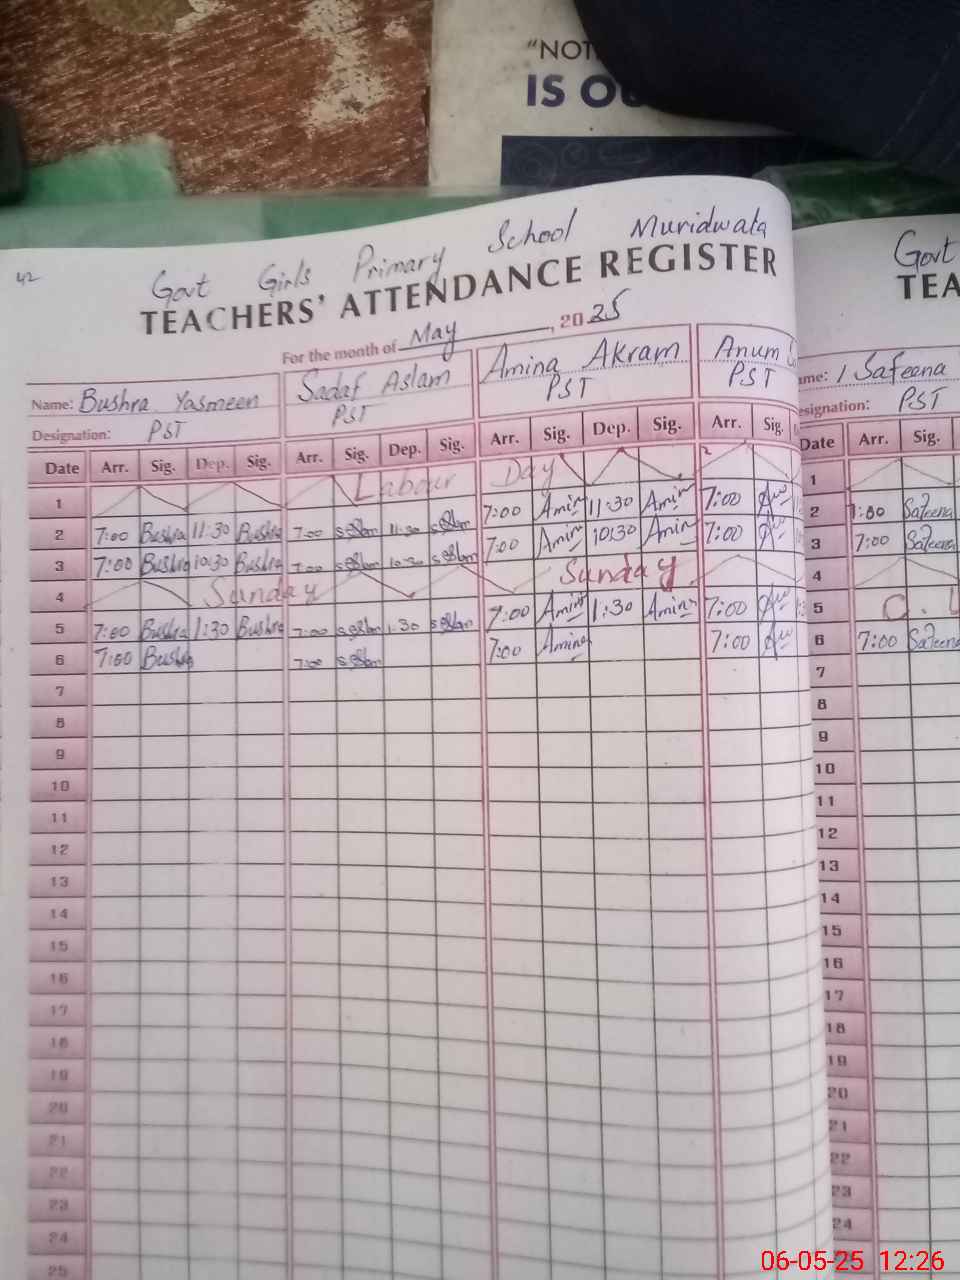 "NOT
IS OU
42
Govt Girls Primary School Muridwata
TEACHERS' ATTENDANCE REGISTER
For the month of May, 2025
Name: Bushra Yasmeen
Designation: PST
Sadaf Aslam
PST
Amina Akram
PST
Anum
PST
Date Arr. Sig. Dep. Sig. Arr. Sig. Dep. Sig. Arr. Sig. Dep. Sig. Arr. Sig.
1 Labour Day
2 7:00 Bushra 11:30 Bushra 7:00 11:30 7:00 Amin 11:30 Amin 7:00
3 7:00 Bushra 10:30 Bushra 7:00 10:30 7:00 Amin 10:30 Amin 7:00
4 Sunday Sunday
5 7:00 Bushra 1:30 Bushra 7:00 1:30 7:00 Amin 1:30 Amin 7:00
6 7:00 Bushra 7:00 7:00 Amina 7:00
7
8
9
10
11
12
13
14
15
16
17
18
19
20
21
22
23
24
25
Govt
TEA
ame: / Safeena
esignation: PST
Date Arr. Sig.
1
2 7:00 Safeena
3 7:00 Safeena
4
5 C.L
6 7:00 Safeena
7
8
9
10
11
12
13
14
15
16
17
18
19
20
21
22
23
24
06-05-25 12:26